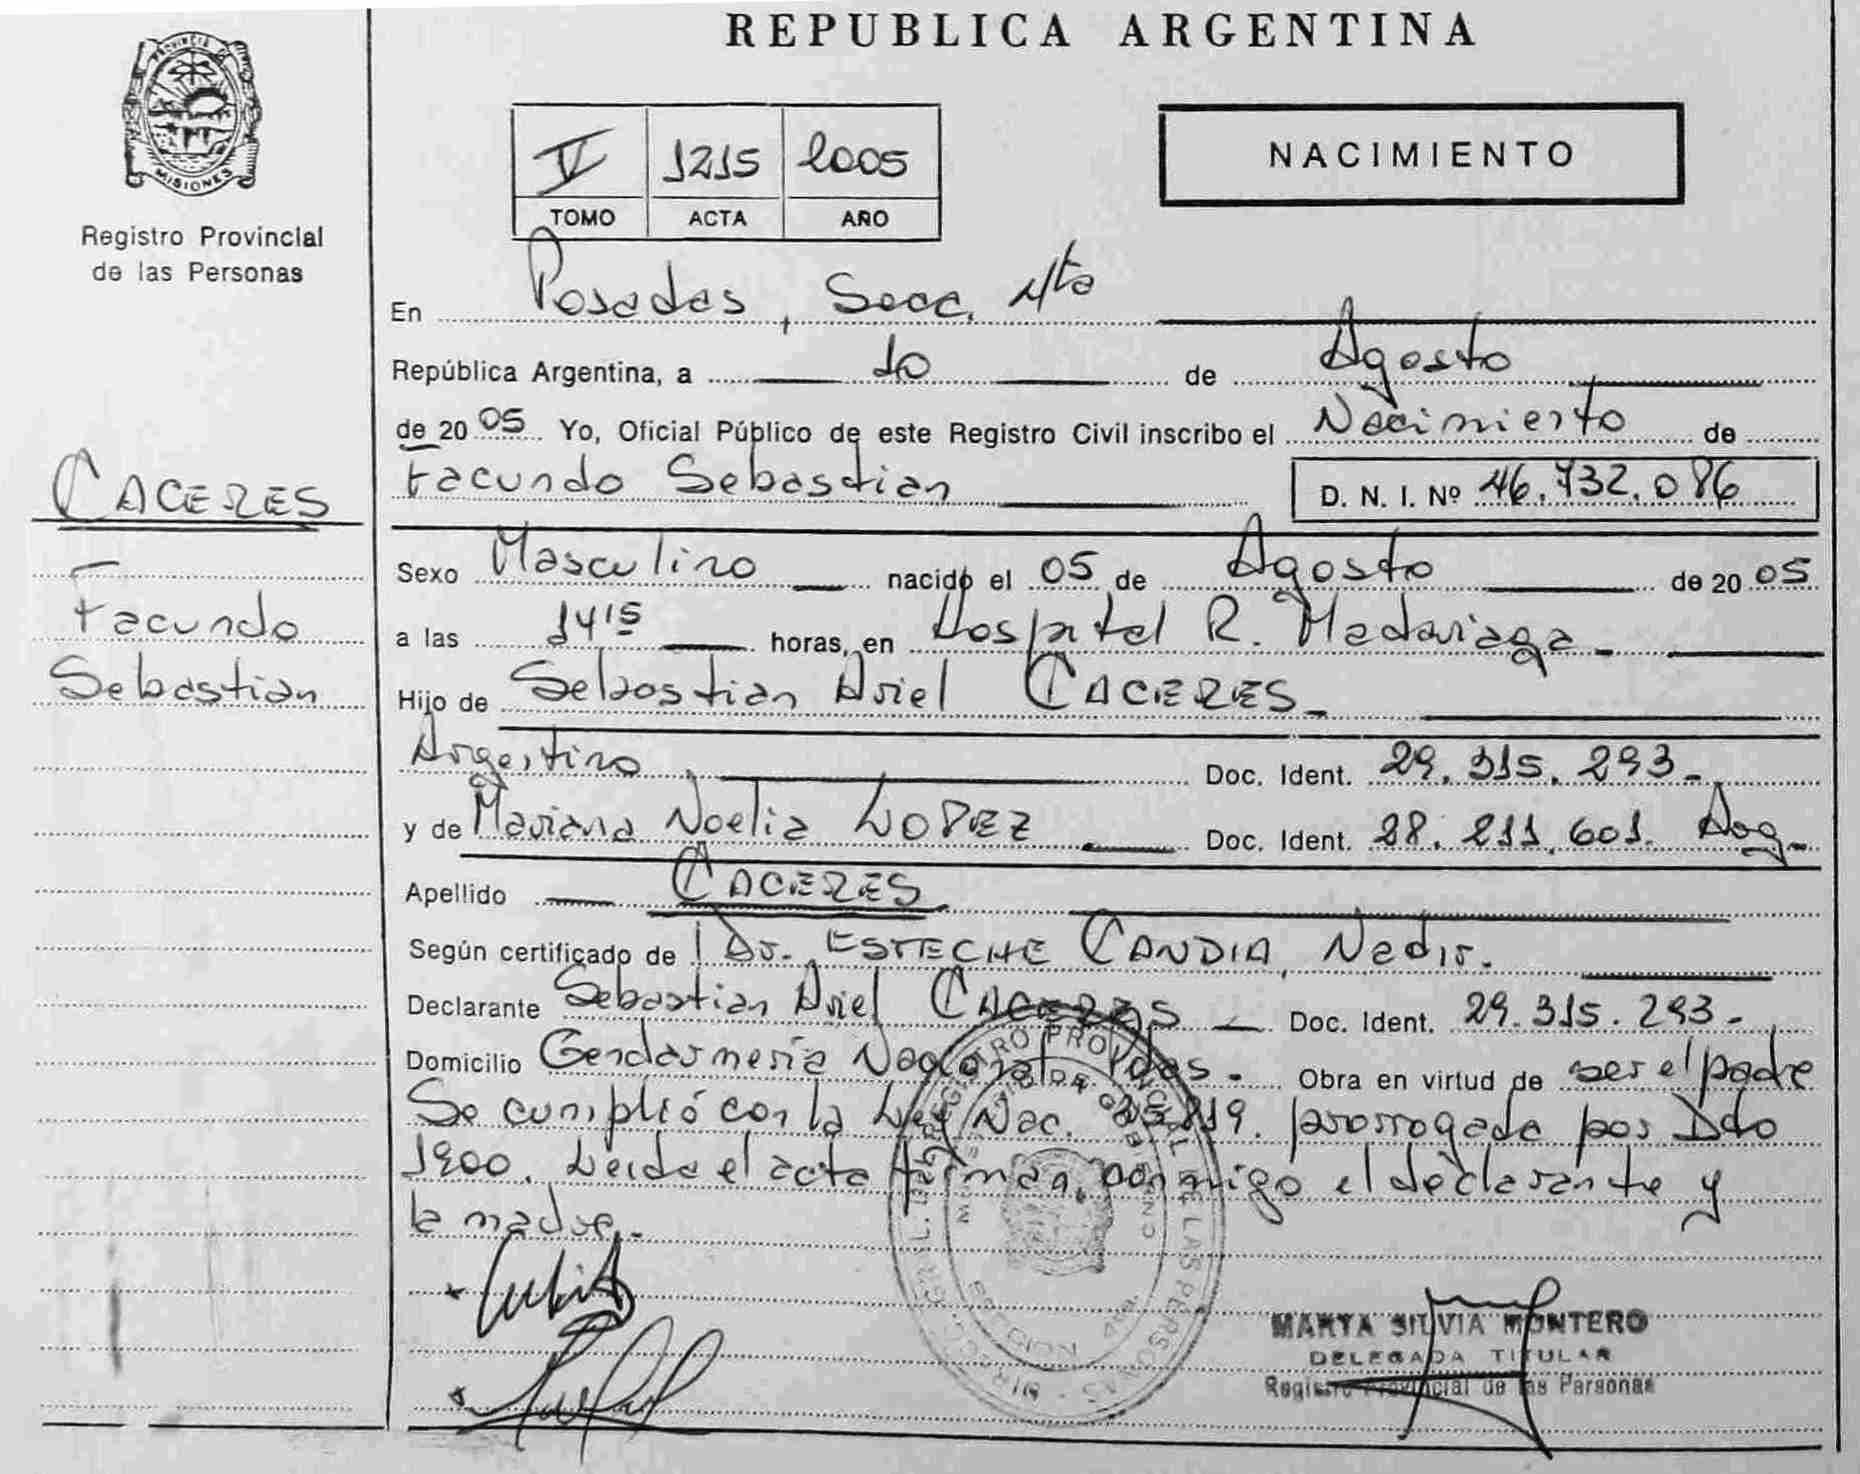 REPUBLICA ARGENTINA
PROVINCIA DE
MISIONES
Registro Provincial
de las Personas
V 1215 2005
TOMO ACTA AÑO
NACIMIENTO
En Posadas, Secc. 4ta
República Argentina, a 10 de Agosto
de 2005 Yo, Oficial Público de este Registro Civil inscribo el Nacimiento de
Facundo Sebastian D. N. I. Nº 46.732.086
CACERES
Facundo
Sebastian
Sexo Masculino nacido el 05 de Agosto de 2005
a las 1415 horas, en Hospital R. Madariaga
Hijo de Sebastian Ariel CACERES
Argentino Doc. Ident. 29.315.293
y de Mariana Noelia LOPEZ Doc. Ident. 28.211.601. Arg.
Apellido CACERES
Según certificado de Dr. ESTECHE CANDIA, Nadir.
Declarante Sebastian Ariel CACERES Doc. Ident. 29.315.293
Domicilio Gendarmeria Nacional Pdas. Obra en virtud de ser el padre
Se cumplió con la Ley Nac. 25.819. prorrogada por Dto
1900. Leida el acta firman conmigo el declarante y
la madre.
REGISTRO PROVINCIAL DE LAS PERSONAS
MISIONES
MARTA SILVIA MONTERO
DELEGADA TITULAR
Registro Provincial de las Personas